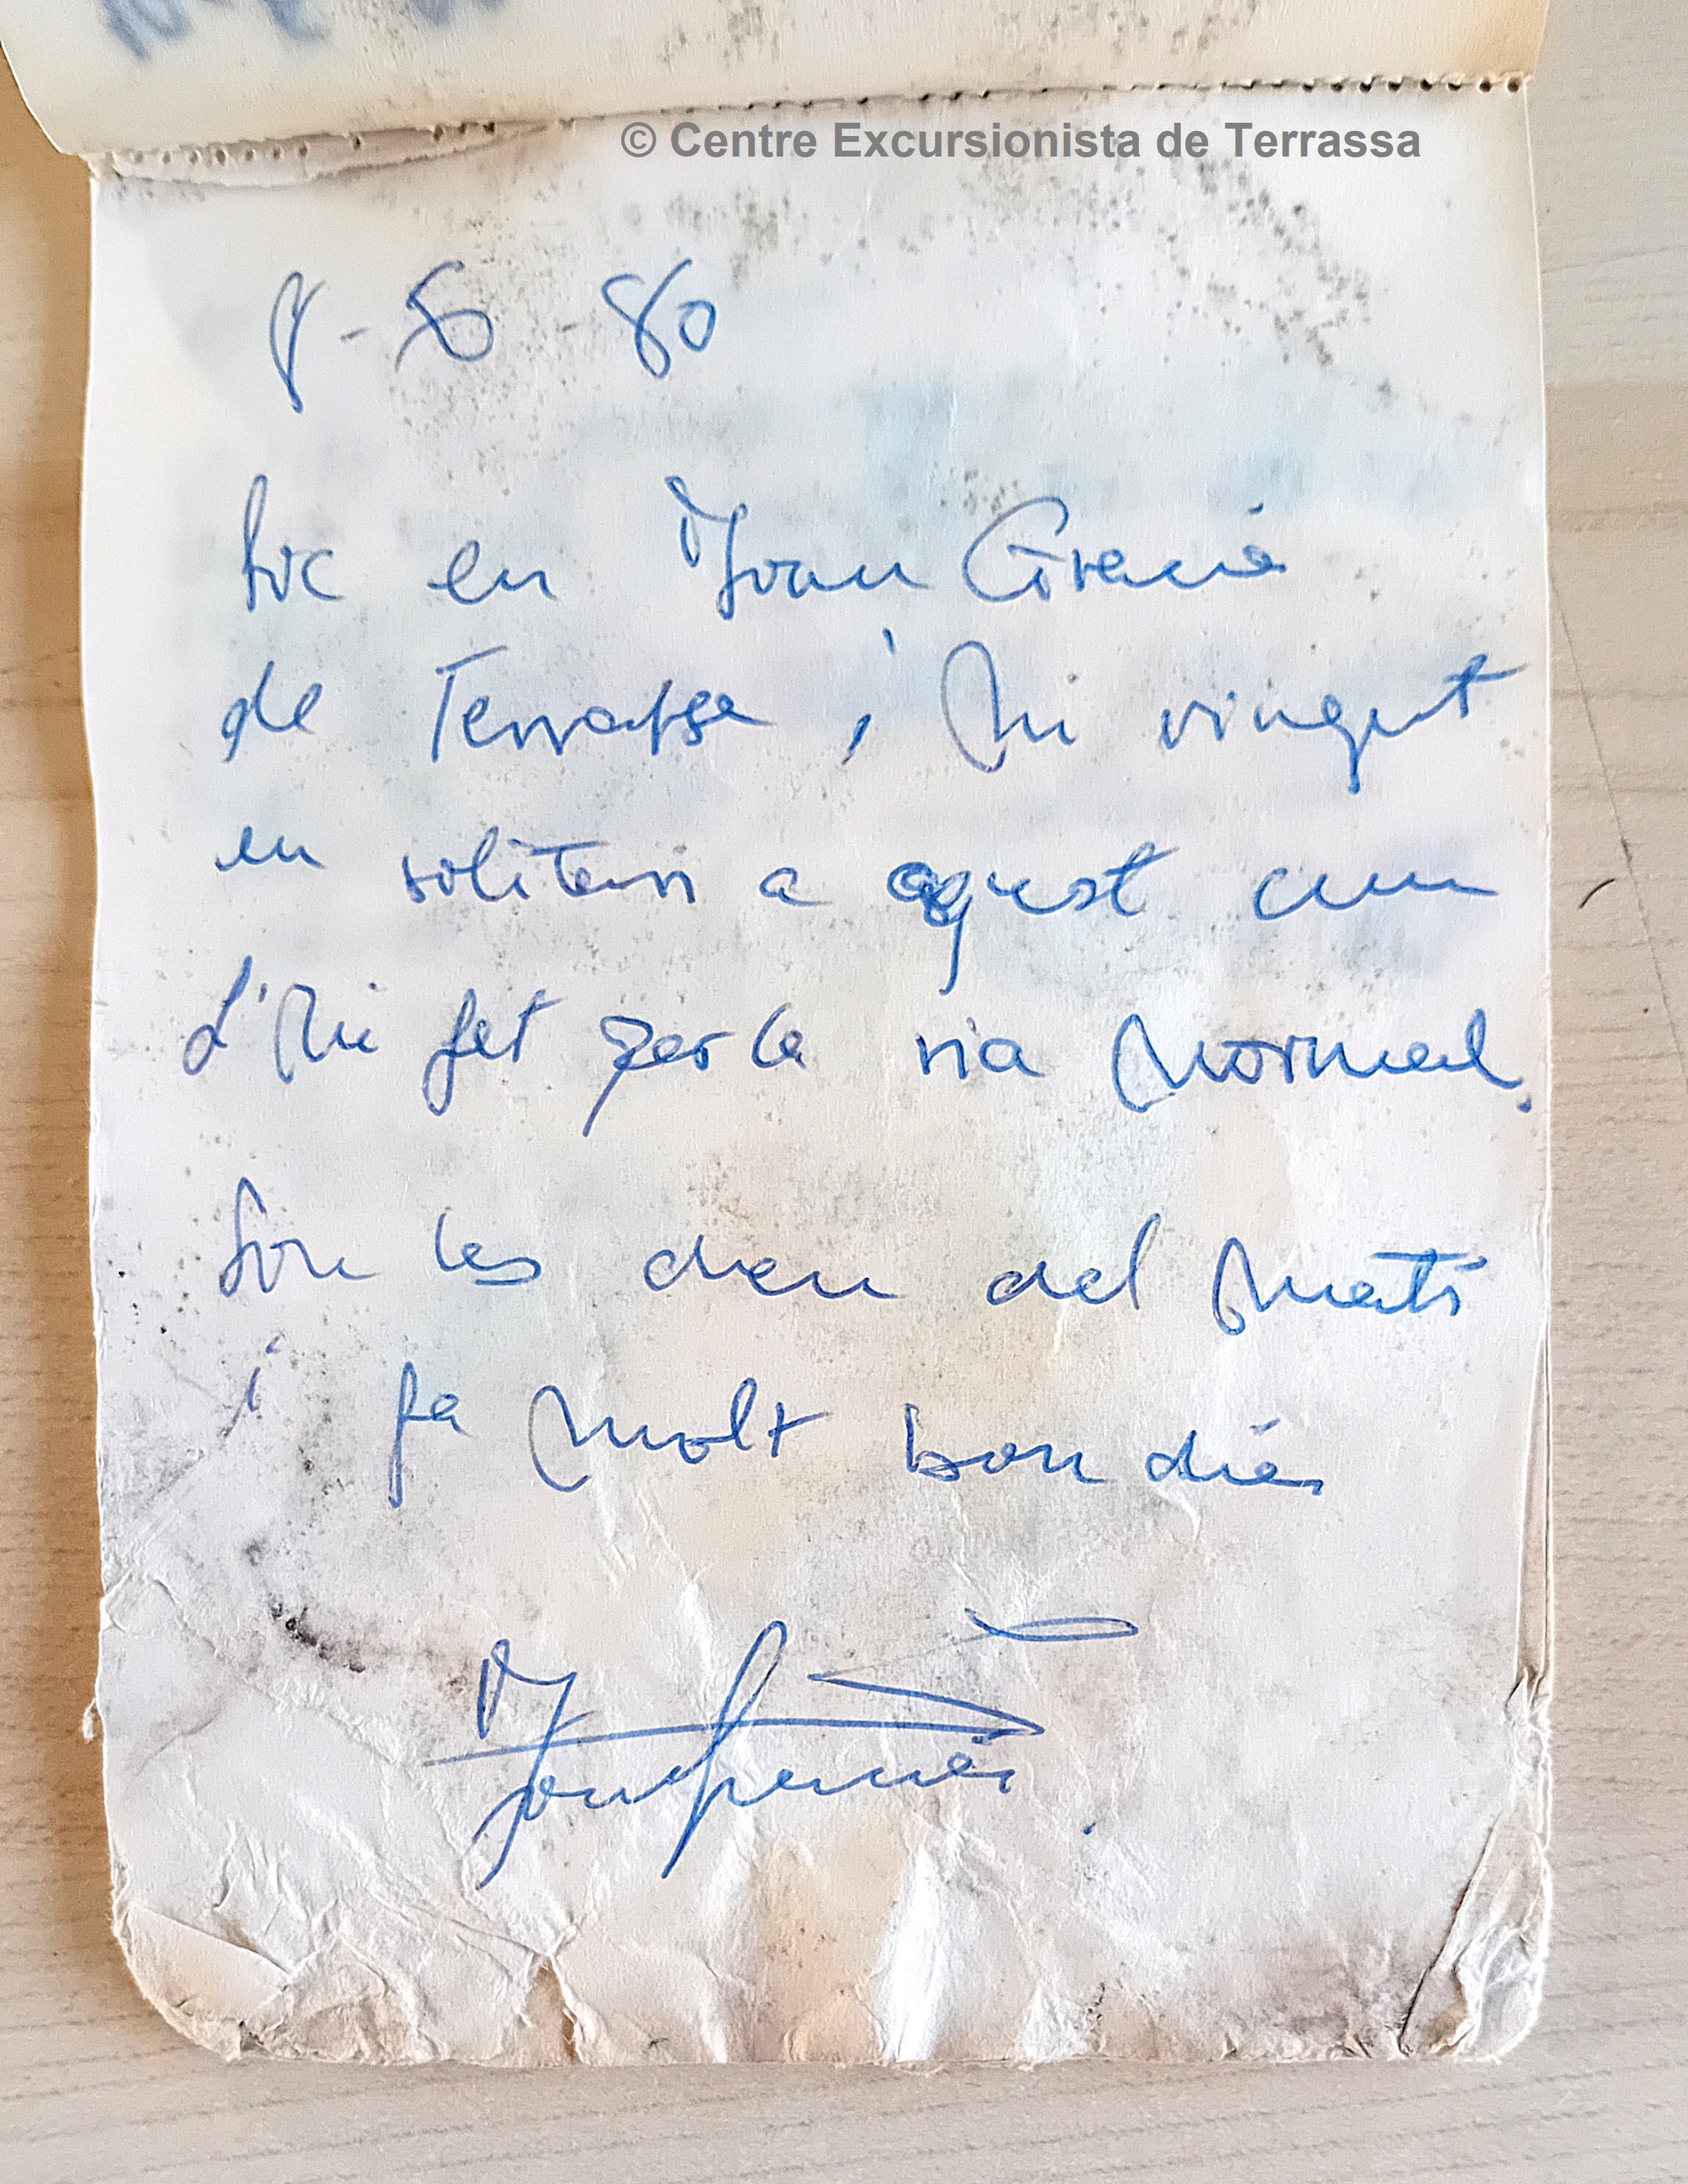 © Centre Excursionista de Terrassa
8 - 8 - 80
Soc en Joan Gracia
de Terrassa i hi vingut
en solitari a aquest cim
L'hi fet per la via normal.
Son les deu del mati
i fa molt bon dia
Joan Gracia